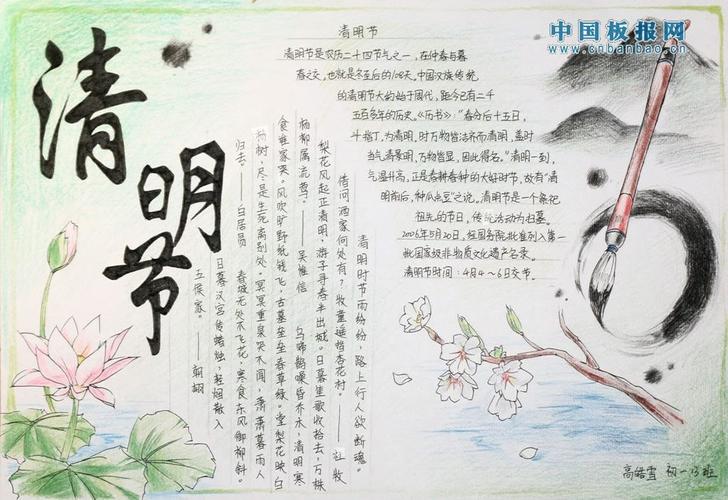 中国板报网
www.cnbanbao.cn
清明节
清明节
清明节是农历二十四节气之一，在仲春与暮
春之交，也就是冬至后的108天。中国汉族传统
的清明节大约始于周代，距今已有二千
五百多年的历史。《历书》：“春分后十五日，
斗指丁，为清明，时万物皆洁齐而清明，盖时
当气清景明，万物皆显，因此得名。”清明一到，
气温升高，正是春耕春种的大好时节，故有“清
明前后，种瓜点豆”之说。清明节是一个祭祀
祖先的节日，传统活动为扫墓。
2006年5月20日，经国务院批准列入第一
批国家级非物质文化遗产名录。
清明节时间：4月4～6日交节。
清明时节雨纷纷，路上行人欲断魂。
借问酒家何处有？牧童遥指杏花村。——杜牧
梨花风起正清明，游子寻春半出城。日暮笙歌收拾去，万株
杨柳属流莺。——吴惟信 乌啼鹊噪昏乔木，清明寒
食谁家哭。风吹旷野纸钱飞，古墓垒垒春草绿。棠梨花映白
杨树，尽是生死离别处。冥冥重泉哭不闻，萧萧暮雨人
归去。——白居易 春城无处不飞花，寒食东风御柳斜。
日暮汉宫传蜡烛，轻烟散入
五侯家。——
高皓雪 初一13班